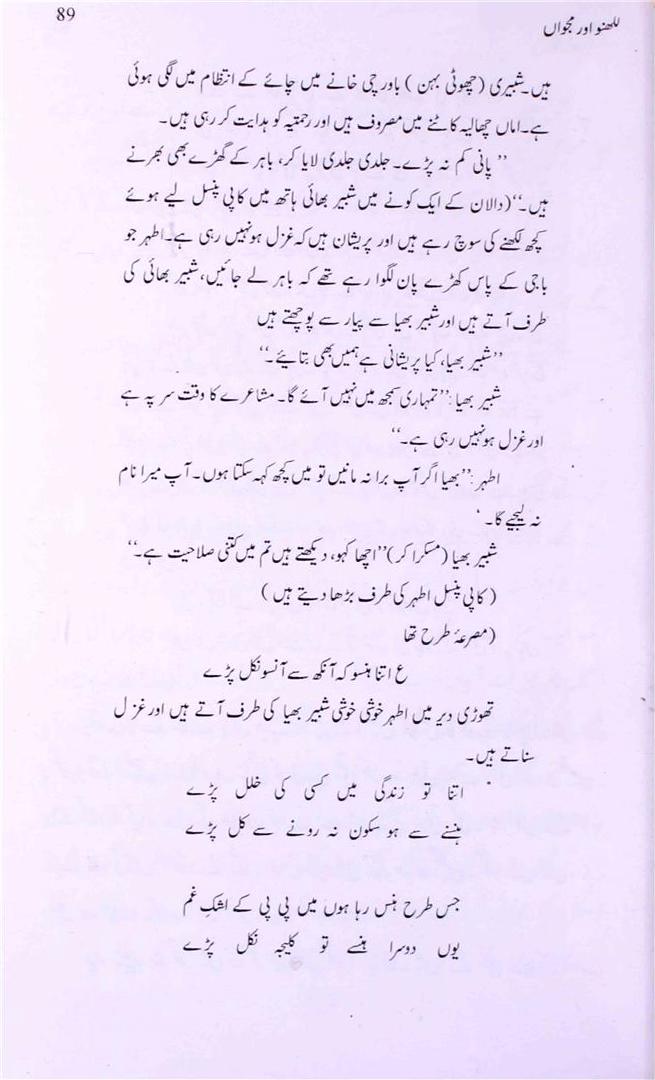 89
لکھنو اور مجواں
ہیں۔شبیری (چھوٹی بہن) باورچی خانے میں چائے کے انتظام میں لگی ہوئی
ہے۔اماں چھالیہ کاٹنے میں مصروف ہیں اور رحمتیہ کو ہدایت کر رہی ہیں۔
’’پانی کم نہ پڑے۔ جلدی جلدی لایا کر، باہر کے گھڑے بھی بھرنے
ہیں۔‘‘(دالان کے ایک کونے میں شبیر بھائی ہاتھ میں کاپی پنسل لیے ہوئے
کچھ لکھنے کی سوچ رہے ہیں اور پریشان ہیں کہ غزل ہو نہیں رہی ہے۔ اطہر جو
باجی کے پاس کھڑے پان لگوا رہے تھے کہ باہر لے جائیں، شبیر بھائی کی
طرف آتے ہیں اور شبیر بھیا سے پیار سے پوچھتے ہیں
’’شبیر بھیا، کیا پریشانی ہے ہمیں بھی بتایئے۔‘‘
شبیر بھیا: ’’تمہاری سمجھ میں نہیں آئے گا۔ مشاعرے کا وقت سر پہ ہے
اور غزل ہو نہیں رہی ہے۔‘‘
اطہر: ’’بھیا اگر آپ برا نہ مانیں تو میں کچھ کہہ سکتا ہوں۔ آپ میرا نام
نہ لیجیے گا۔‘
شبیر بھیا (مسکرا کر) ’’اچھا کہو، دیکھتے ہیں تم میں کتنی صلاحیت ہے۔‘‘
(کاپی پنسل اطہر کی طرف بڑھا دیتے ہیں)
(مصرعۂ طرح تھا
ع اتنا ہنسو کہ آنکھ سے آنسو نکل پڑے
تھوڑی دیر میں اطہر خوشی خوشی شبیر بھیا کی طرف آتے ہیں اور غزل
سناتے ہیں۔
اتنا تو زندگی میں کسی کی خلل پڑے
ہنسنے سے ہو سکون نہ رونے سے کل پڑے
جس طرح ہنس رہا ہوں میں پی پی کے اشکِ غم
یوں دوسرا ہنسے تو کلیجہ نکل پڑے